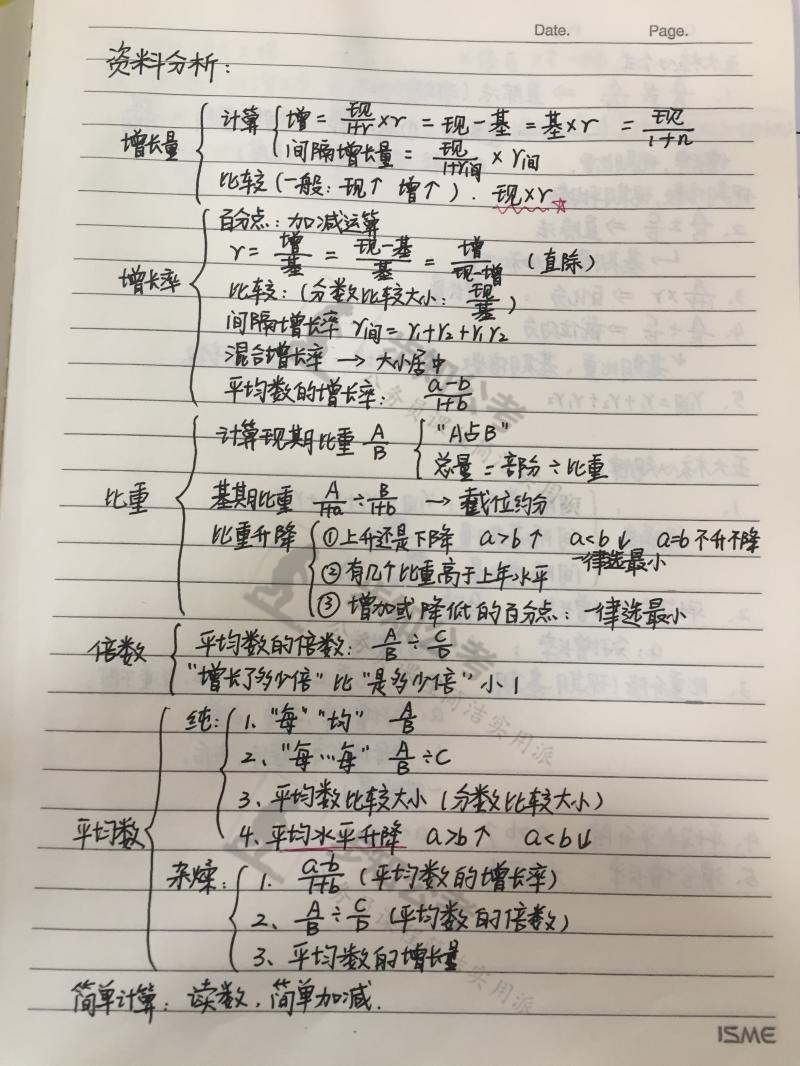 Date. Page.
资料分析：
增长量
计算
增 = 现/1+r × r = 现-基 = 基×r = 现/1+n
间隔增长量 = 现/1+r间 × r间
比较（一般：现↑ 增↑）. 现×r ☆
增长率
百分点：加减运算
r = 增/基 = 现-基/基 = 增/现-增 （直除）
比较：（分数比较大小：现/基）
间隔增长率 r间 = r₁+r₂+r₁r₂
混合增长率 → 大小居中
平均数的增长率： a-b/1+b
比重
计算现期比重 A/B
"A占B"
总量 = 部分÷比重
基期比重 A/1+a ÷ B/1+b → 截位约分
比重升降
①上升还是下降 a>b↑ a<b↓ a=b 不升不降
一律选最小
②有几个比重高于上年水平
③增加或降低的百分点：一律选最小
倍数
平均数的倍数： A/B ÷ C/D
"增长了多少倍" 比 "是多少倍" 小1
平均数
纯：
1、"每" "均" A/B
2、"每…每" A/B ÷ C
3、平均数比较大小（分数比较大小）
4、平均水平升降 a>b↑ a<b↓
杂糅：
1、 a-b/1+b （平均数的增长率）
2、 A/B ÷ C/D （平均数的倍数）
3、平均数的增长量
简单计算：读数，简单加减.
ISME